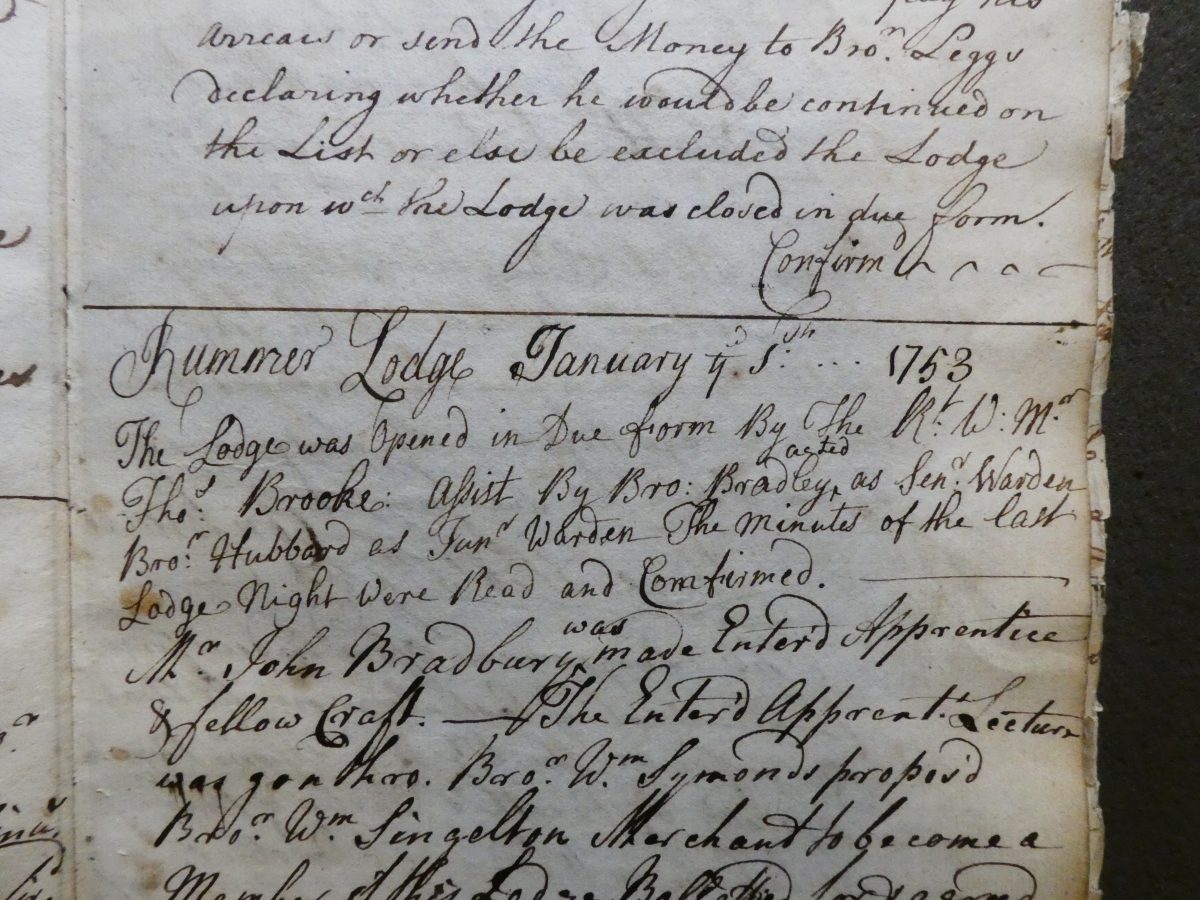 pay his
arrears or send the Money to Bro.r Leggs
declaring whether he would be continued on
the List or else be excluded the Lodge
upon w.ch the Lodge was closed in due form.
Confirm'd
Rummer Lodge January y.e 5.th ... 1753
The Lodge was Opened in Due form By The R.t W: M.r
Tho.s Brooke: Assist By Bro: Bradley, acted as Sen.r Warden
Bro.r Hubbard as Jun.r Warden The Minutes of the last
Lodge Night Were Read and Comfirmed.
M.r John Bradbury was made Enter'd Apprentice
& fellow Craft. — The Enter'd Apprent. Lecture
was gon thro. Bro.r W.m Symonds propos'd
Bro.r W.m Singelton Merchant to become a
Member of this Lodge Ballotted for &